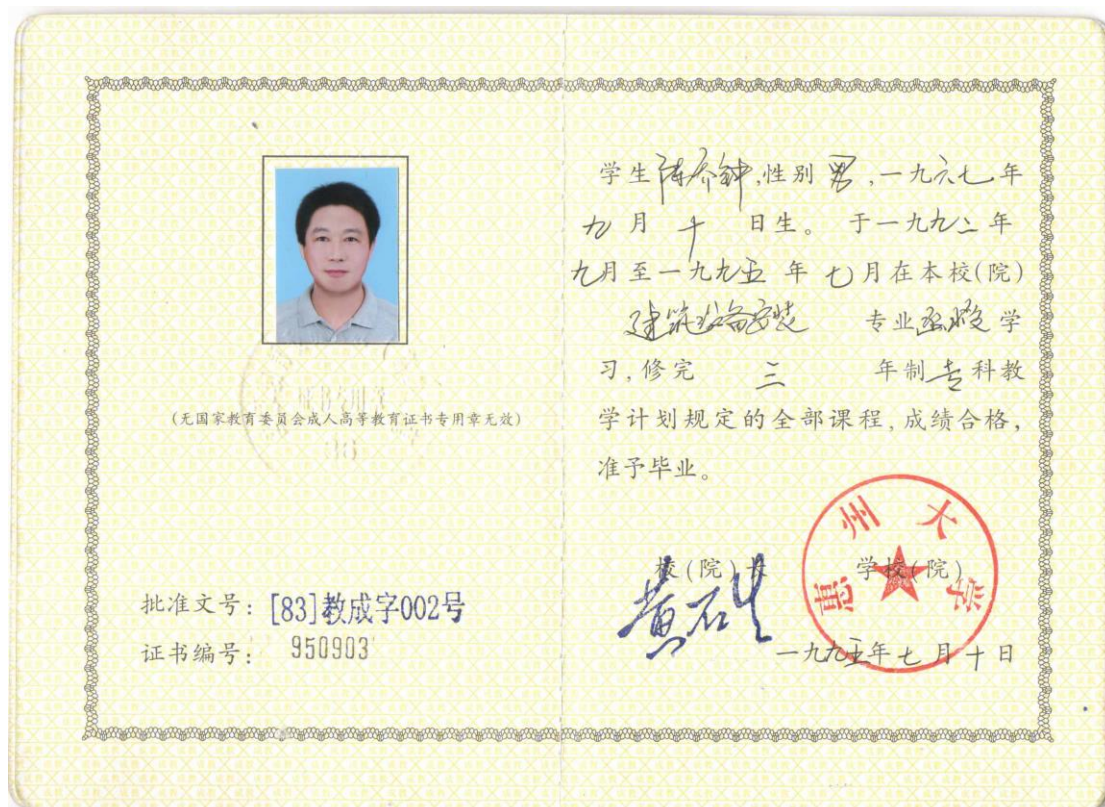 (无国家教育委员会成人高等教育证书专用章无效)
批准文号: [83]教成字002号
证书编号: 950903
学生 ,性别 男 ,一九六七年
九月 十 日生。 于一九九二年
九月至一九九五年七月在本校(院)
建筑设备安装 专业函授学
习,修完 三 年制专科教
学计划规定的全部课程,成绩合格,
准予毕业。
校(院)长 学校(院)
惠州大学
一九九五年七月十日